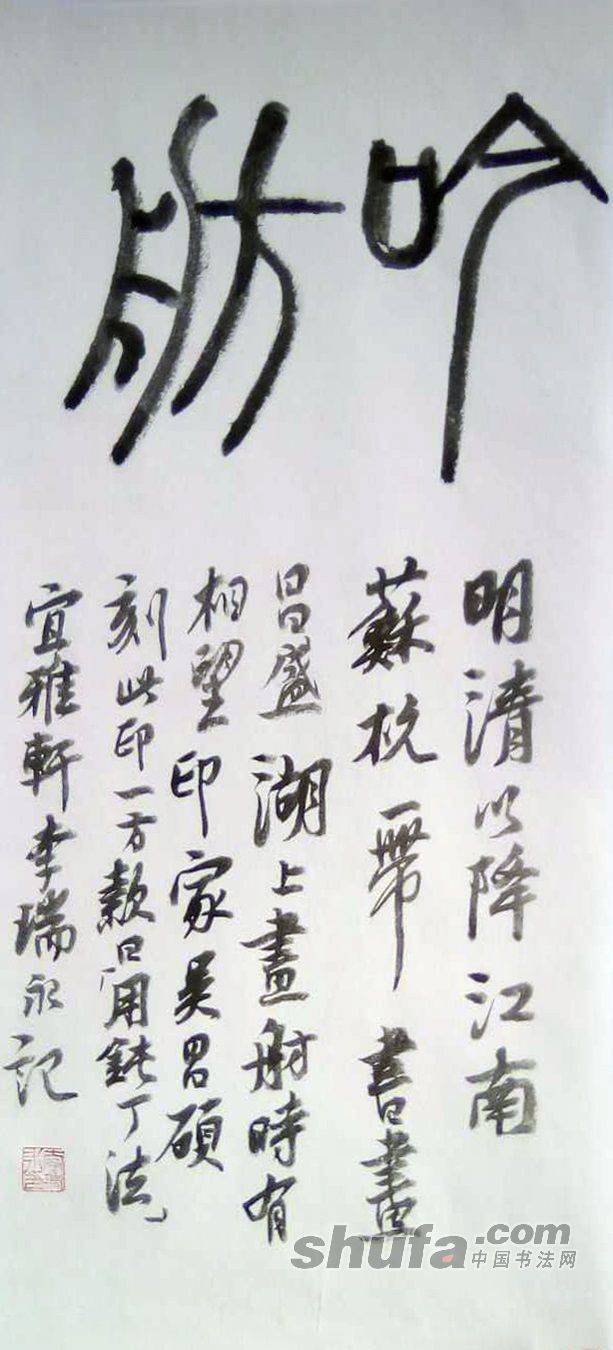 吟舫
明清以降江南
蘇杭一帶書畫
昌盛湖上畫舫時有
相望印家吳昌碩
刻此印一方款曰用鈍丁法
宜雅軒李瑞永記
shufa.com
中国书法网